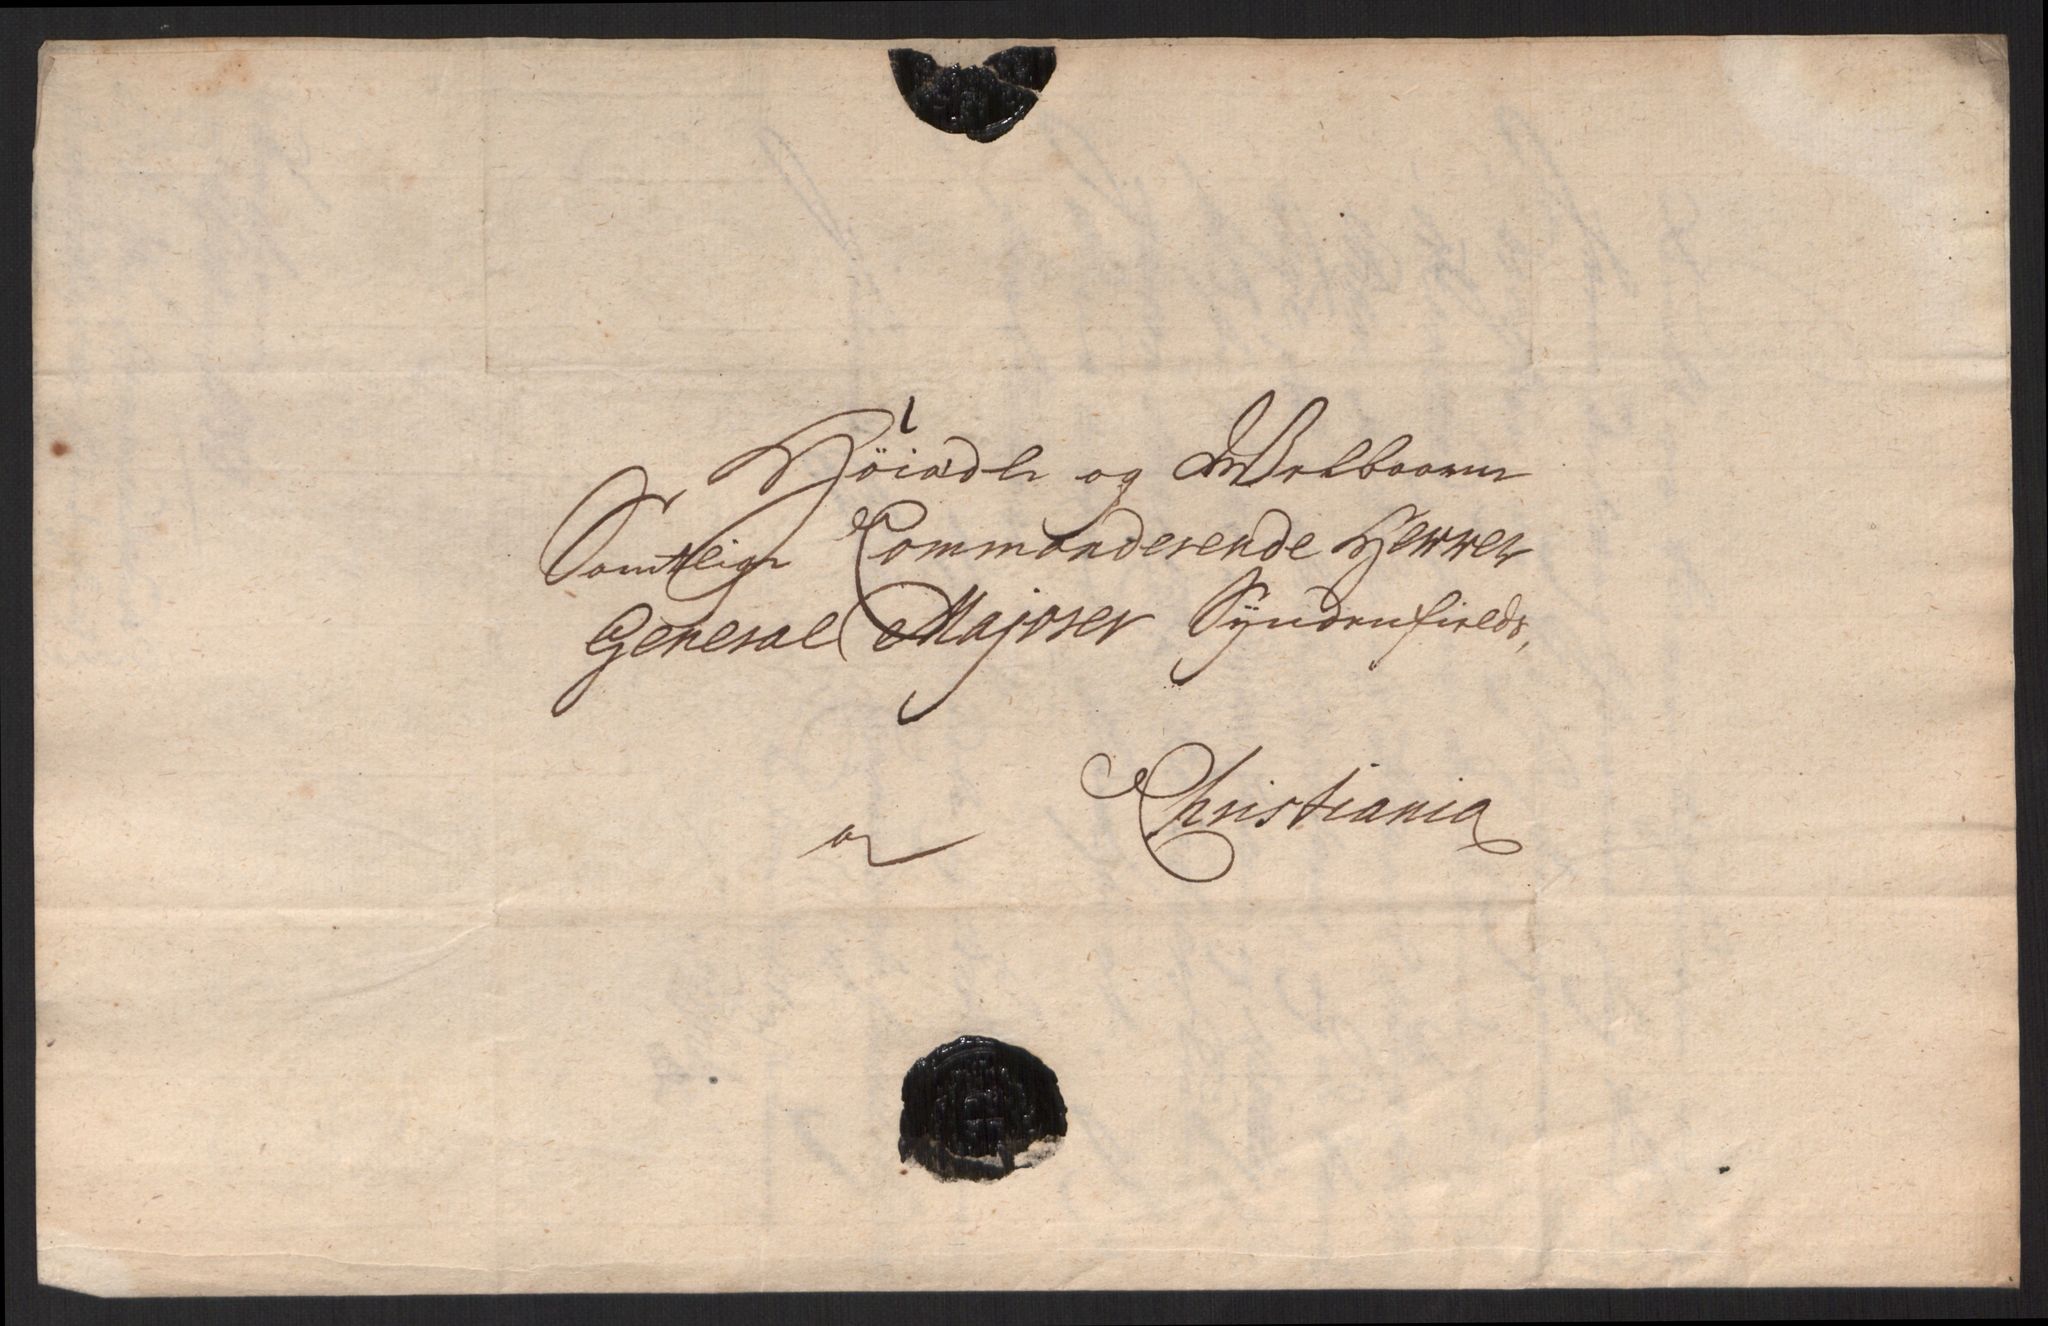 Höiædle og Welbaarne
Samtlige Commanderende Herrer
General Majorer Syndenfields,
Christiania